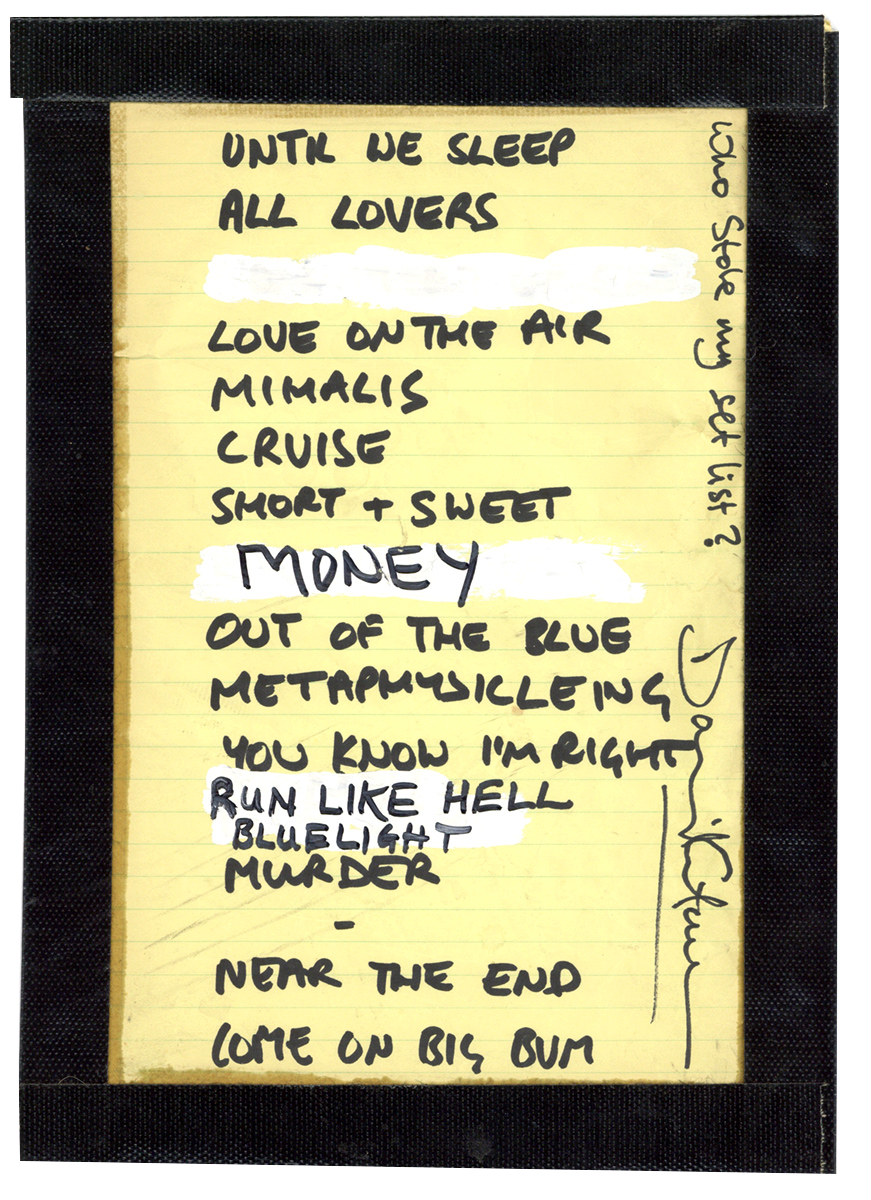 UNTIL WE SLEEP
ALL LOVERS
LOVE ON THE AIR
MIMALIS
CRUISE
SHORT + SWEET
MONEY
OUT OF THE BLUE
METAPHYSICLEING
YOU KNOW I'M RIGHT
RUN LIKE HELL
BLUELIGHT
MURDER
-
NEAR THE END
COME ON BIG BUM
Who Stole my set list?